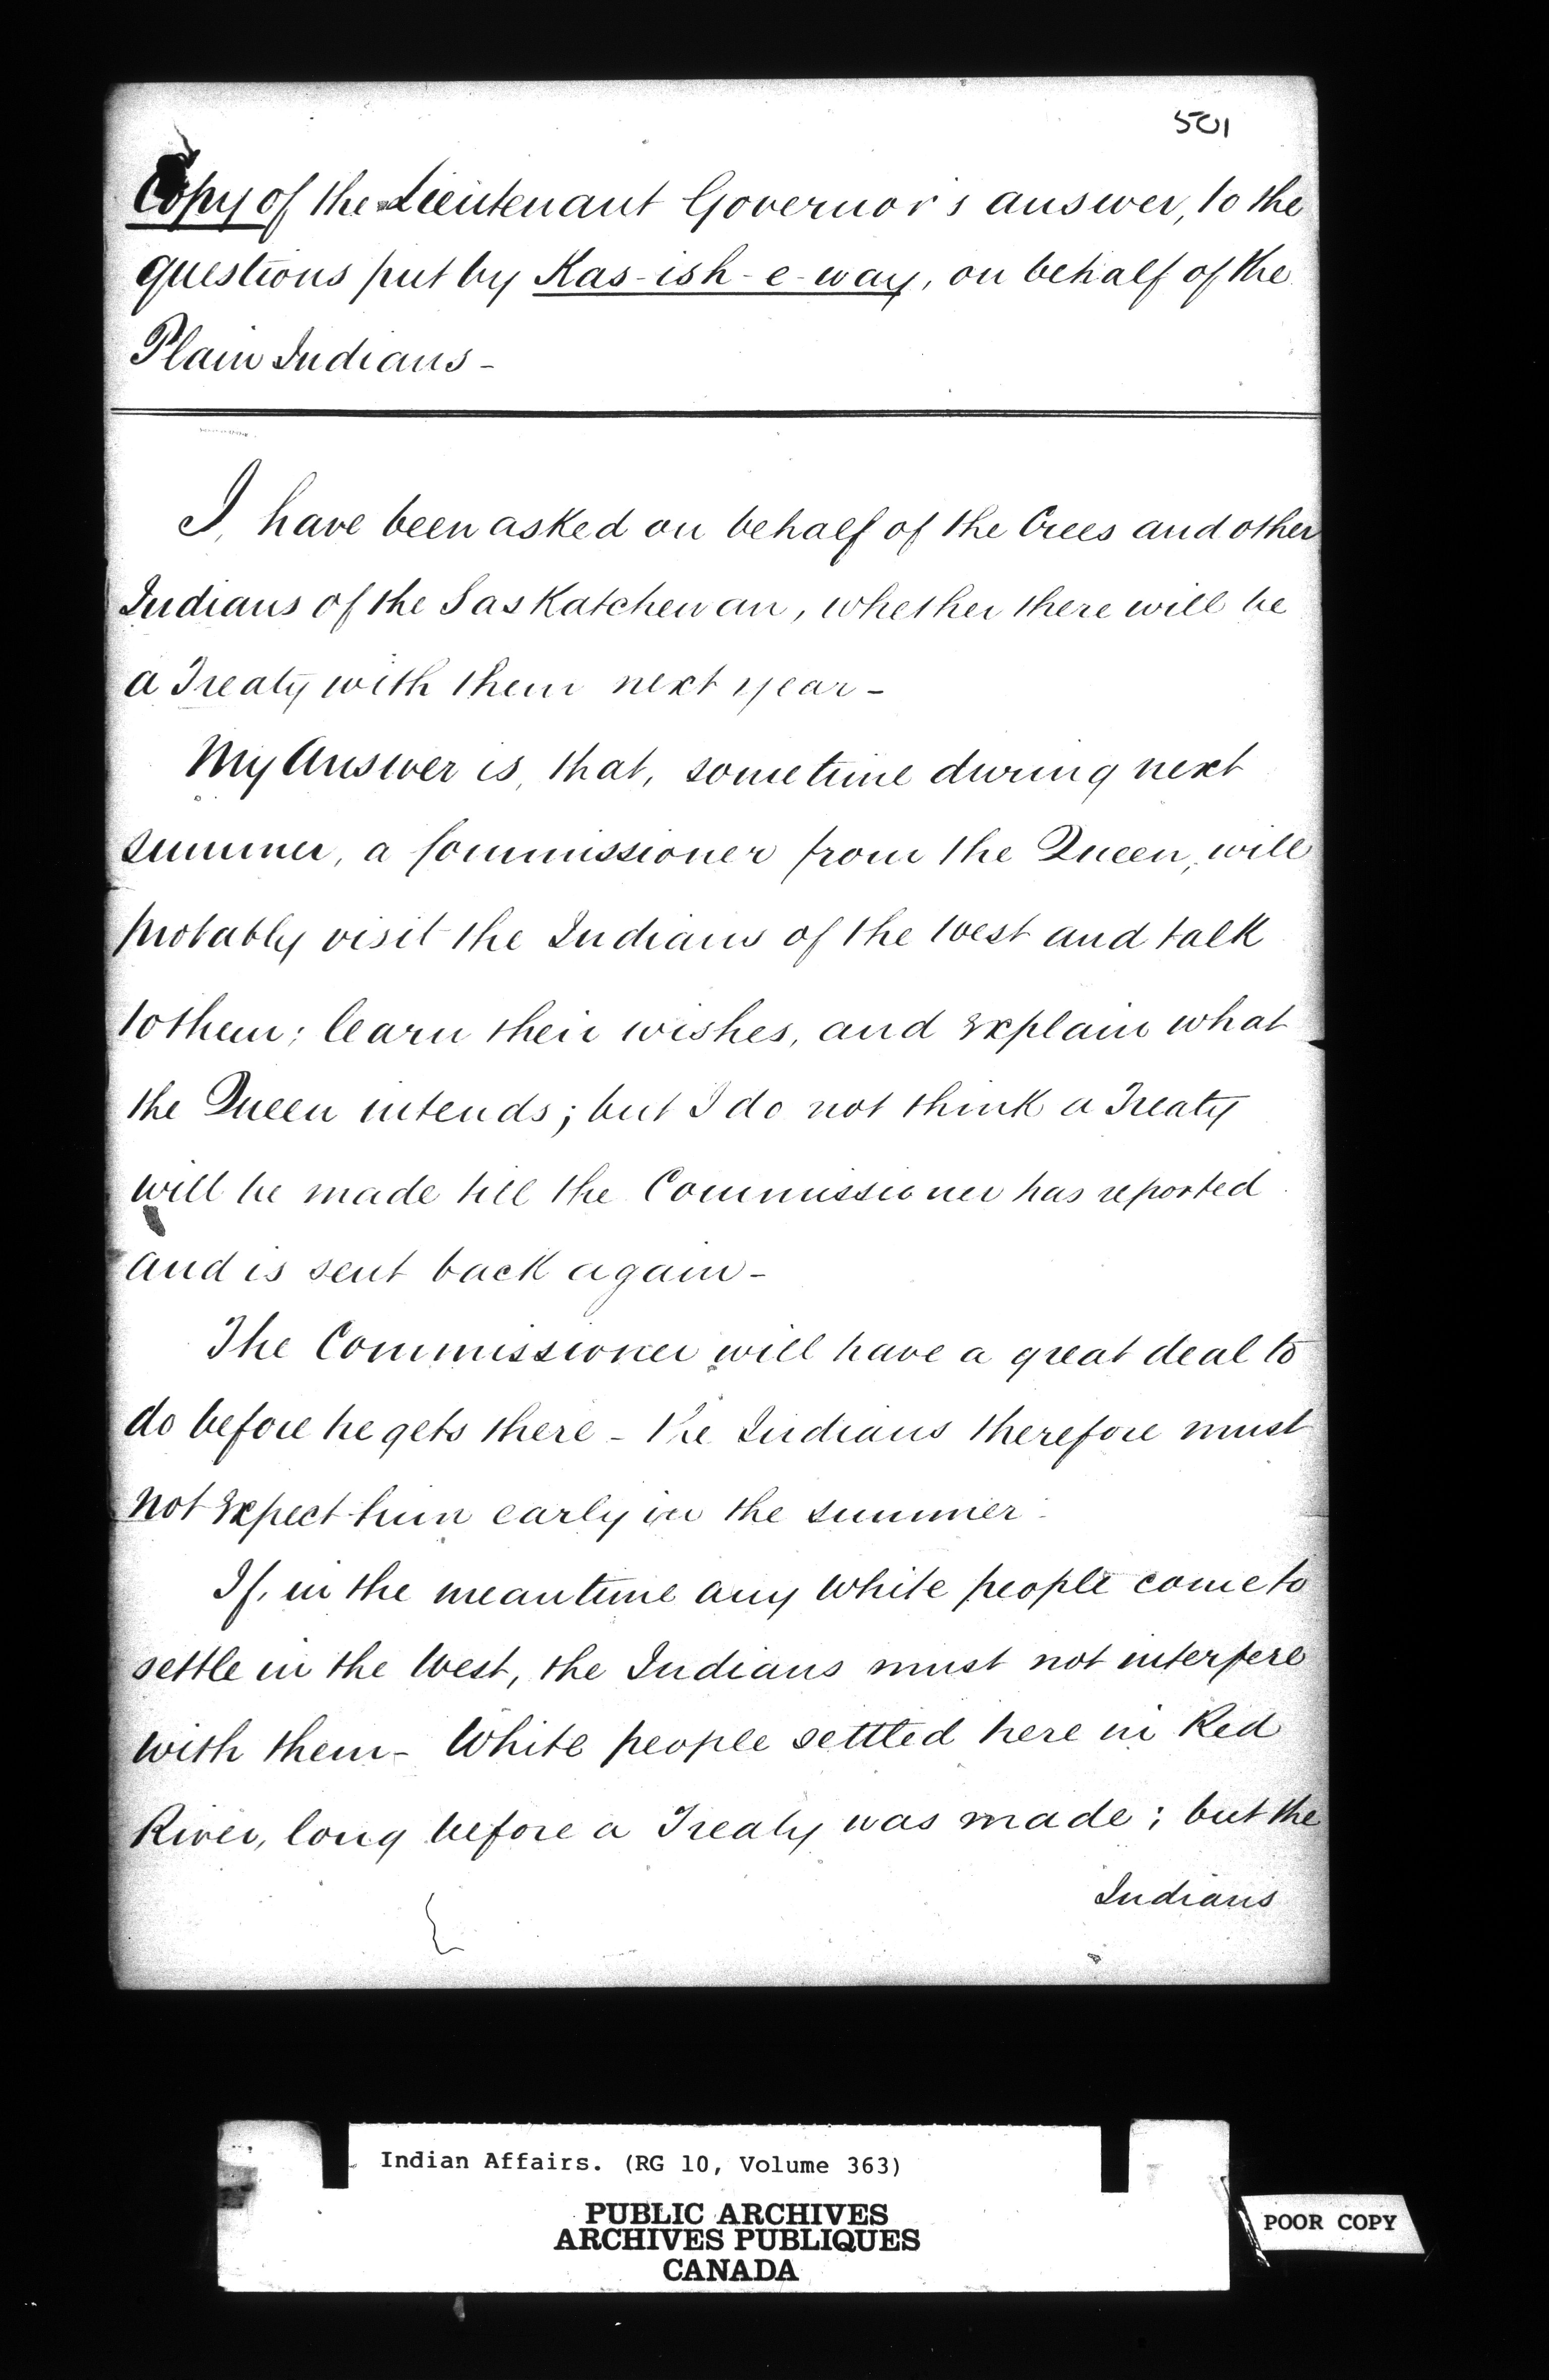 501
Copy of the Lieutenant Governor's answer, to the
questions put by Kas-ish-e-way, on behalf of the
Plain Indians-
I, have been asked on behalf of the Crees and other
Indians of the Saskatchewan, whether there will be
a Treaty with them next year-
My Answer is, that, sometime during next
summer, a Commissioner from the Queen, will
probably visit the Indians of the West and talk
to them; learn their wishes, and explain what
the Queen intends; but I do not think a Treaty
will be made till the Commissioner has reported
and is sent back again-
The Commissioner will have a great deal to
do before he gets there - the Indians therefore must
not expect him early in the summer-
If, in the meantime any White people come to
settle in the West, the Indians must not interfere
with them- White people settled here in Red
River, long before a Treaty was made; but the
Indians
Indian Affairs. (RG 10, Volume 363)
PUBLIC ARCHIVES
ARCHIVES PUBLIQUES
CANADA
POOR COPY